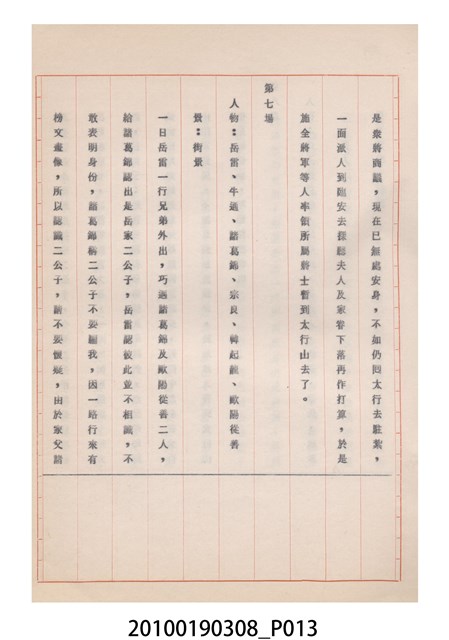 是衆將商議，現在已無處安身，不如仍回太行去駐紮，
一面派人到臨安去探聽夫人及家眷下落再作打算，於是
施全將軍等人率領所屬將士暫到太行山去了。
第七場
人物：岳雷、牛通、諸葛錦、宗良、韓起龍、歐陽從善
景：街景
一日岳雷一行兄弟外出，巧遇諸葛錦及歐陽從善二人，
給諸葛錦認出是岳家二公子，岳雷認彼此並不相識，不
敢表明身份，諸葛錦稱二公子不要瞞我，因一路行來有
榜文畫像，所以認識二公子，請不要懷疑，由於家父諸
20100190308_P013